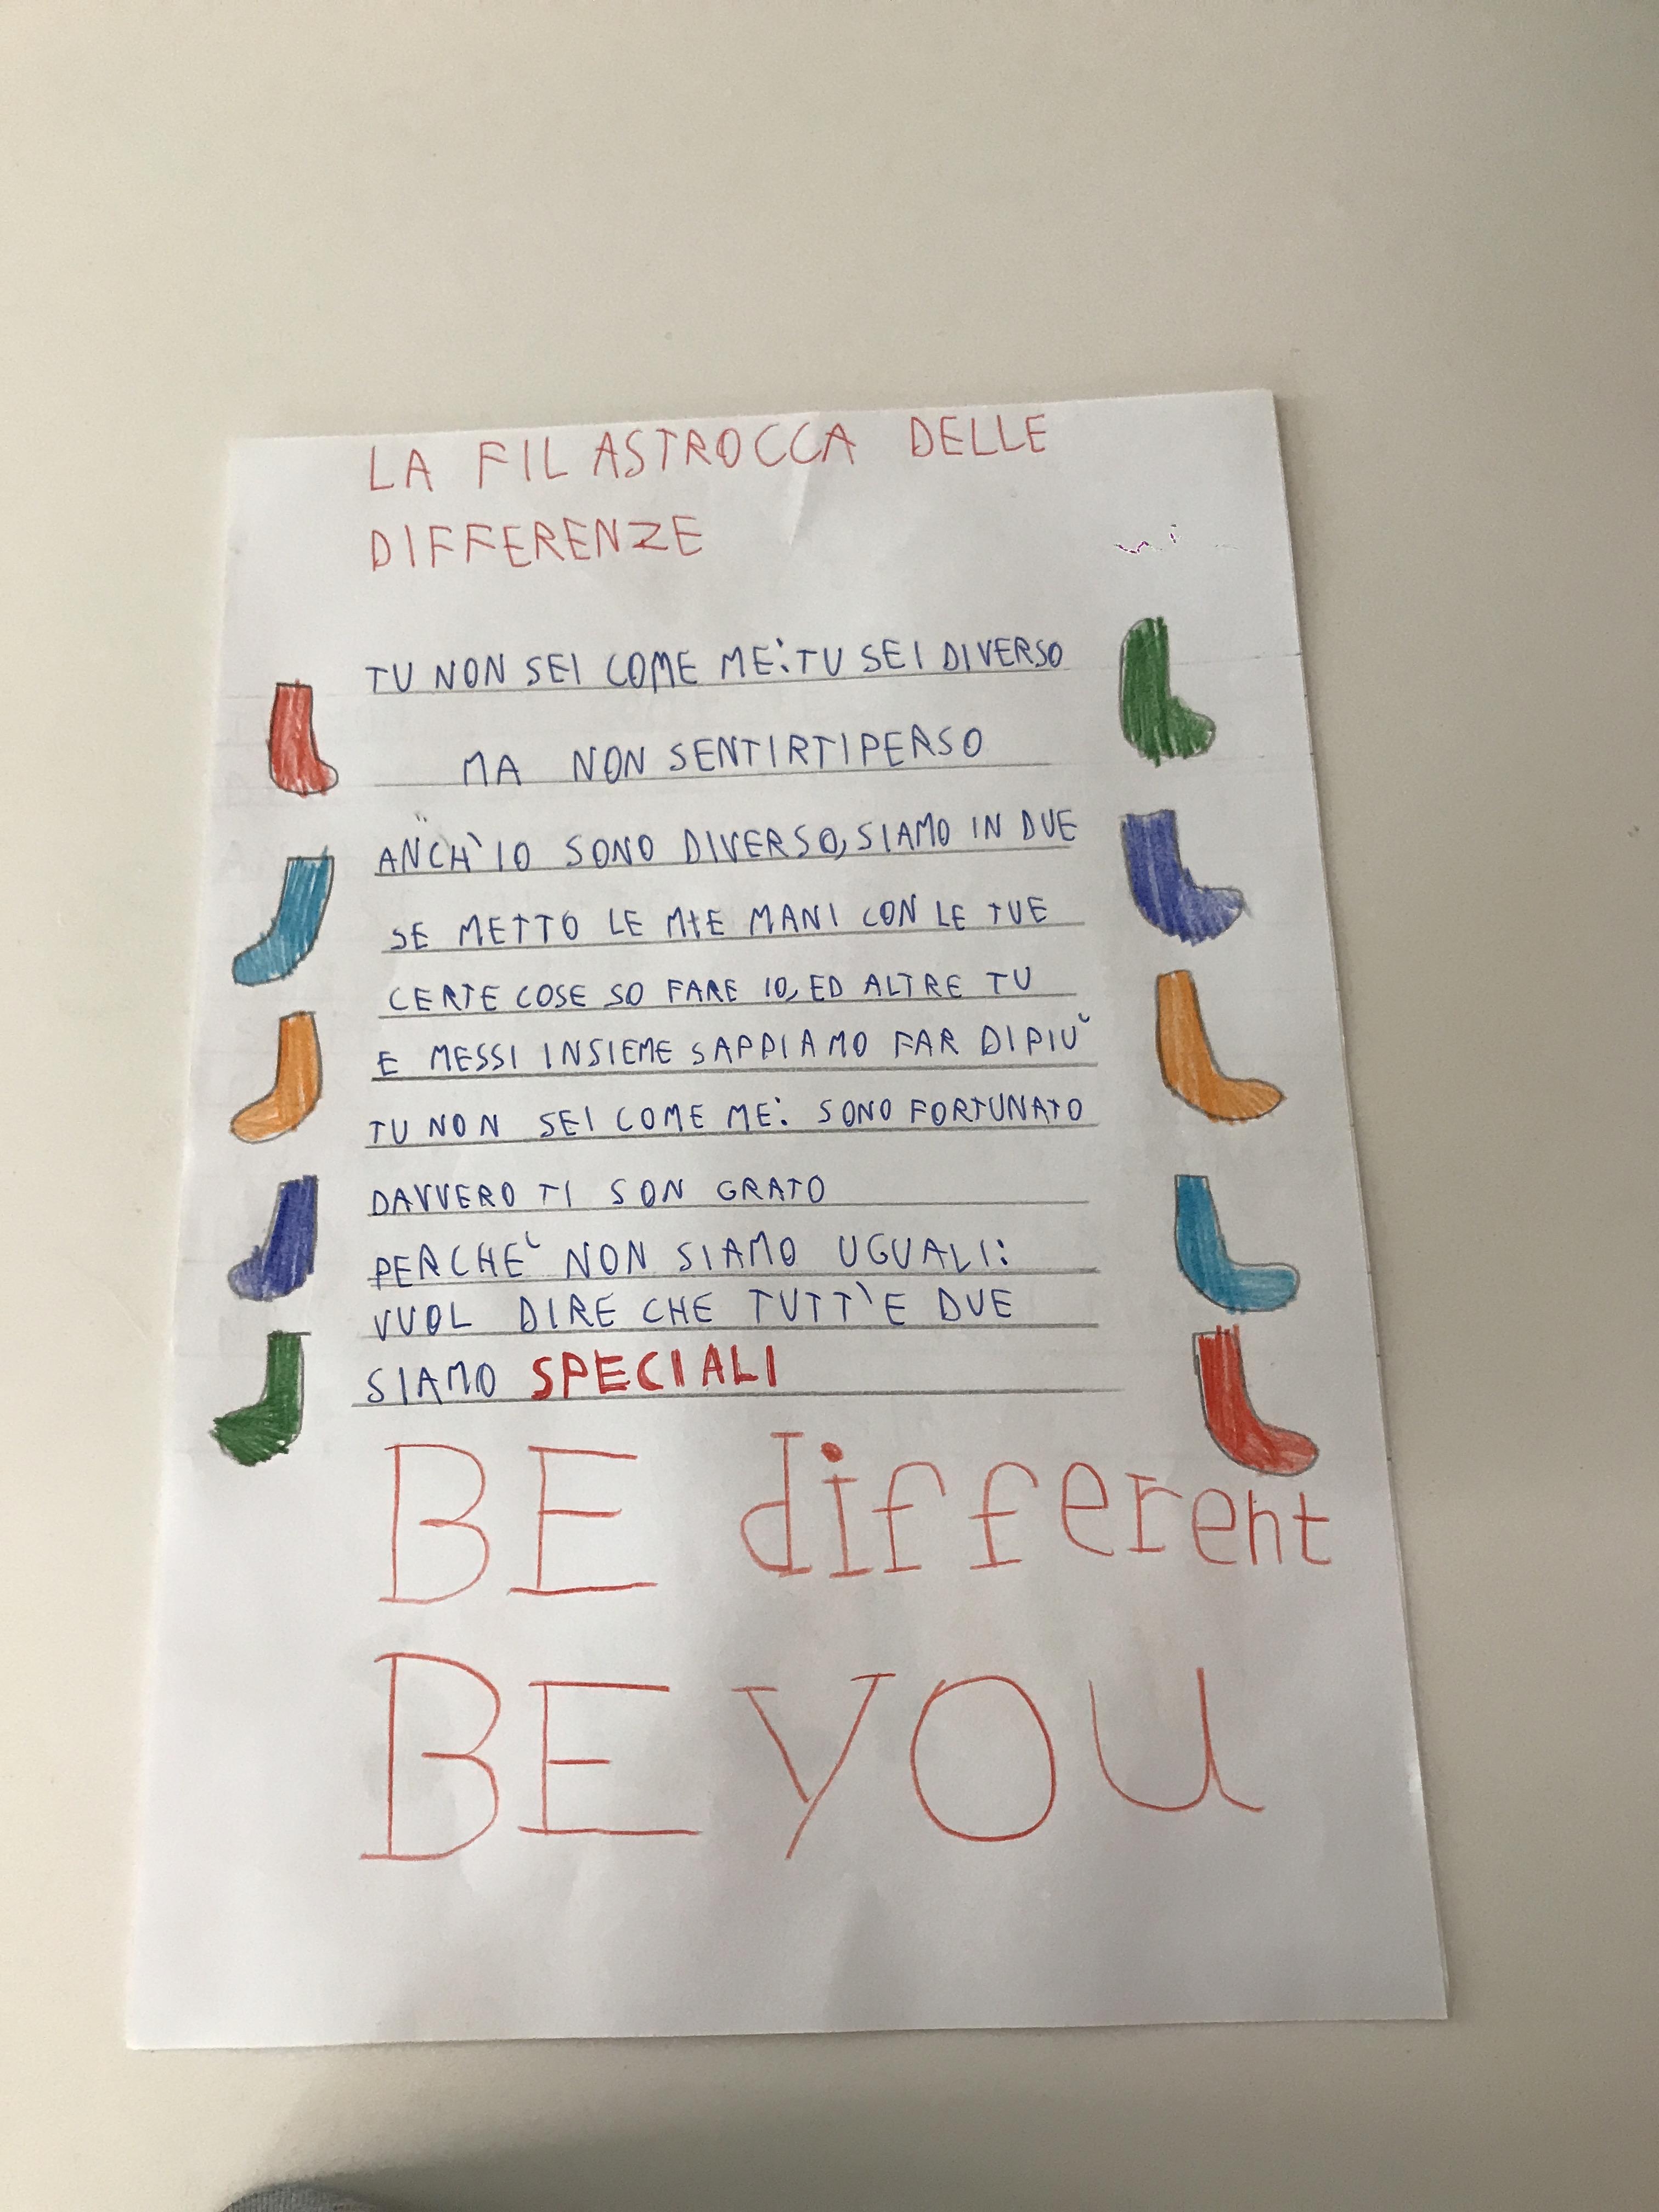 LA FILASTROCCA DELLE
DIFFERENZE
TU NON SEI COME ME: TU SEI DIVERSO
MA NON SENTIRTI PERSO
ANCH'IO SONO DIVERSO, SIAMO IN DUE
SE METTO LE MIE MANI CON LE TUE
CERTE COSE SO FARE IO, ED ALTRE TU
E MESSI INSIEME SAPPIAMO FAR DI PIÙ
TU NON SEI COME ME: SONO FORTUNATO
DAVVERO TI SON GRATO
PERCHÈ NON SIAMO UGUALI:
VUOL DIRE CHE TUTT'E DUE
SIAMO SPECIALI
BE different
BE YOU